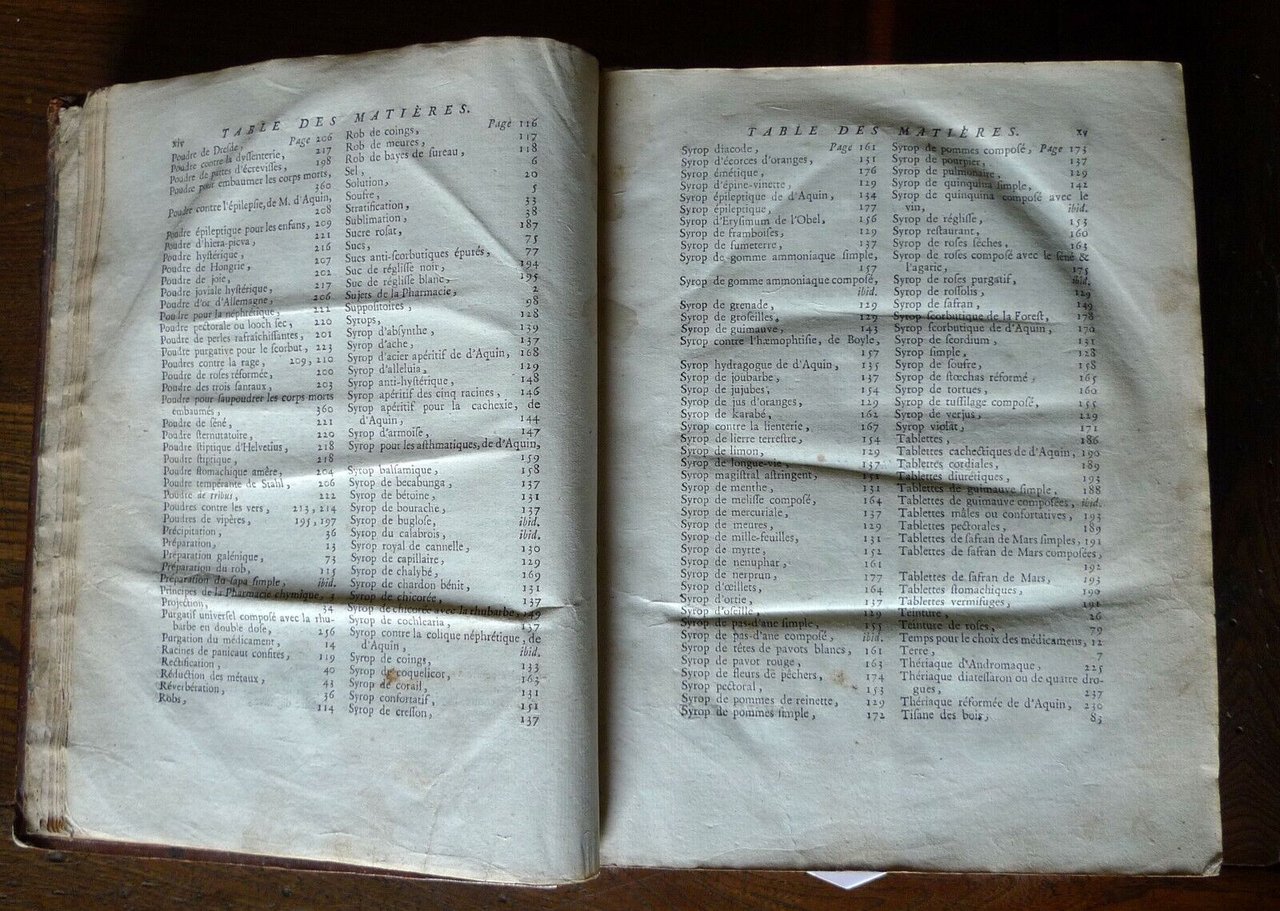 xiv
TABLE DES MATIÈRES.
Poudre de Dresde, Page 206
Poudre contre la dyssenterie, 217
Poudre de pattes d'écrevisses, 198
Poudre pour embaumer les corps morts,
360
Poudre contre l'épilepsie, de M. d'Aquin,
208
Poudre épileptique pour les enfans, 209
Poudre d'hiera-picra, 221
Poudre hystérique, 216
Poudre de Hongrie, 207
Poudre de joie, 202
Poudre joviale hystérique, 217
Poudre d'or d'Allemagne, 206
Poudre pour la néphrétique, 222
Poudre pectorale ou looch sec, 220
Poudre de perles rafraîchissantes, 201
Poudre purgative pour le scorbut, 223
Poudres contre la rage, 209, 210
Poudre de roses réformée, 200
Poudre des trois santaux, 203
Poudre pour saupoudrer les corps morts
embaumés, 360
Poudre de séné, 221
Poudre sternutatoire, 220
Poudre stiptique d'Helvetius, 218
Poudre stiptique, 218
Poudre stomachique amère, 204
Poudre tempérante de Stahl, 206
Poudre de tribus, 222
Poudres contre les vers, 213, 214
Poudres de vipères, 195, 197
Précipitation, 36
Préparation, 13
Préparation galénique, 73
Préparation du rob, 115
Préparation du sapa simple, ibid.
Principes de la Pharmacie chymique, 3
Projection, 34
Purgatif universel composé avec la rhu-
barbe en double dose, 256
Purgation du médicament, 14
Racines de panicaut confites, 119
Rectification, 40
Réduction des métaux, 43
Réverbération, 36
Robs, 114
Rob de coings, Page 116
Rob de meures, 117
Rob de bayes de sureau, 118
Sel, 6
Solution, 20
Soufre, 5
Stratification, 33
Sublimation, 38
Sucre rosat, 187
Sucs, 75
Sucs anti-scorbutiques épurés, 77
Suc de réglisse noir, 194
Suc de réglisse blanc, 195
Sujets de la Pharmacie, 2
Suppositoires, 98
Syrops, 128
Syrop d'absynthe, 139
Syrop d'ache, 137
Syrop d'acier apéritif de d'Aquin, 168
Syrop d'alleluia, 129
Syrop anti-hystérique, 148
Syrop apéritif des cinq racines, 146
Syrop apéritif pour la cachexie, de
d'Aquin, 144
Syrop d'armoise, 147
Syrop pour les asthmatiques, de d'Aquin,
159
Syrop balsamique, 158
Syrop de becabunga, 137
Syrop de bétoine, 131
Syrop de bourache, 137
Syrop de buglose, ibid.
Syrop du calabrois, ibid.
Syrop royal de cannelle, 130
Syrop de capillaire, 129
Syrop de chalybé, 169
Syrop de chardon bénit, 131
Syrop de chicorée, 137
Syrop de chicorée avec la rhubarbe, 149
Syrop de cochlearia, 137
Syrop contre la colique néphrétique, de
d'Aquin, ibid.
Syrop de coings, 133
Syrop de coquelicot, 163
Syrop de corail, 131
Syrop confortatif, 151
Syrop de cresson, 137
TABLE DES MATIÈRES.
xv
Syrop diacode, Page 161
Syrop d'écorces d'oranges, 131
Syrop émétique, 176
Syrop d'épine-vinette, 129
Syrop épileptique de d'Aquin, 134
Syrop épileptique, 177
Syrop d'Erysimum de l'Obel, 156
Syrop de framboises, 129
Syrop de fumeterre, 137
Syrop de gomme ammoniaque simple,
157
Syrop de gomme ammoniaque composé,
ibid.
Syrop de grenade, 129
Syrop de groseilles, 129
Syrop de guimauve, 143
Syrop contre l'hæmophtisie, de Boyle,
157
Syrop hydragogue de d'Aquin, 135
Syrop de joubarbe, 137
Syrop de jujubes, 154
Syrop de jus d'oranges, 129
Syrop de karabé, 162
Syrop contre la lienterie, 167
Syrop de lierre terrestre, 154
Syrop de limon, 129
Syrop de longue-vie, 137
Syrop magistral astringent, 151
Syrop de menthe, 131
Syrop de melisse composé, 164
Syrop de mercuriale, 137
Syrop de meures, 129
Syrop de mille-feuilles, 131
Syrop de myrte, 152
Syrop de nenuphar, 161
Syrop de nerprun, 177
Syrop d'œillets, 164
Syrop d'ortie, 137
Syrop d'oseille, 129
Syrop de pas-d'ane simple, 155
Syrop de pas-d'ane composé, ibid.
Syrop de têtes de pavots blancs, 161
Syrop de pavot rouge, 163
Syrop de fleurs de pêchers, 174
Syrop pectoral, 153
Syrop de pommes de reinette, 129
Syrop de pommes simple, 172
Syrop de pommes composé, Page 173
Syrop de pourpier, 137
Syrop de pulmonaire, 129
Syrop de quinquina simple, 142
Syrop de quinquina composé avec le
vin, ibid.
Syrop de réglisse, 153
Syrop restaurant, 160
Syrop de roses séches, 163
Syrop de roses composé avec le séné &
l'agaric, 175
Syrop de roses purgatif, ibid.
Syrop de rossolis, 129
Syrop de safran, 149
Syrop scorbutique de la Forest, 178
Syrop scorbutique de d'Aquin, 170
Syrop de scordium, 131
Syrop simple, 128
Syrop de soufre, 158
Syrop de stœchas réformé, 165
Syrop de tortues, 160
Syrop de tussilage composé, 155
Syrop de verjus, 129
Syrop violat, 171
Tablettes, 186
Tablettes cachectiques de d'Aquin, 190
Tablettes cordiales, 189
Tablettes diurétiques, 193
Tablettes de guimauve simple, 188
Tablettes de guimauve composées, ibid.
Tablettes mâles ou confortatives, 193
Tablettes pectorales, 189
Tablettes de safran de Mars simples, 191
Tablettes de safran de Mars composées,
192
Tablettes de safran de Mars, 193
Tablettes stomachiques, 190
Tablettes vermifuges, 191
Teinture, 26
Teinture de roses, 79
Temps pour le choix des médicamens, 12
Terre, 7
Thériaque d'Andromaque, 225
Thériaque diatessaron ou de quatre dro-
gues, 237
Thériaque réformée de d'Aquin, 230
Tisane des bois, 83